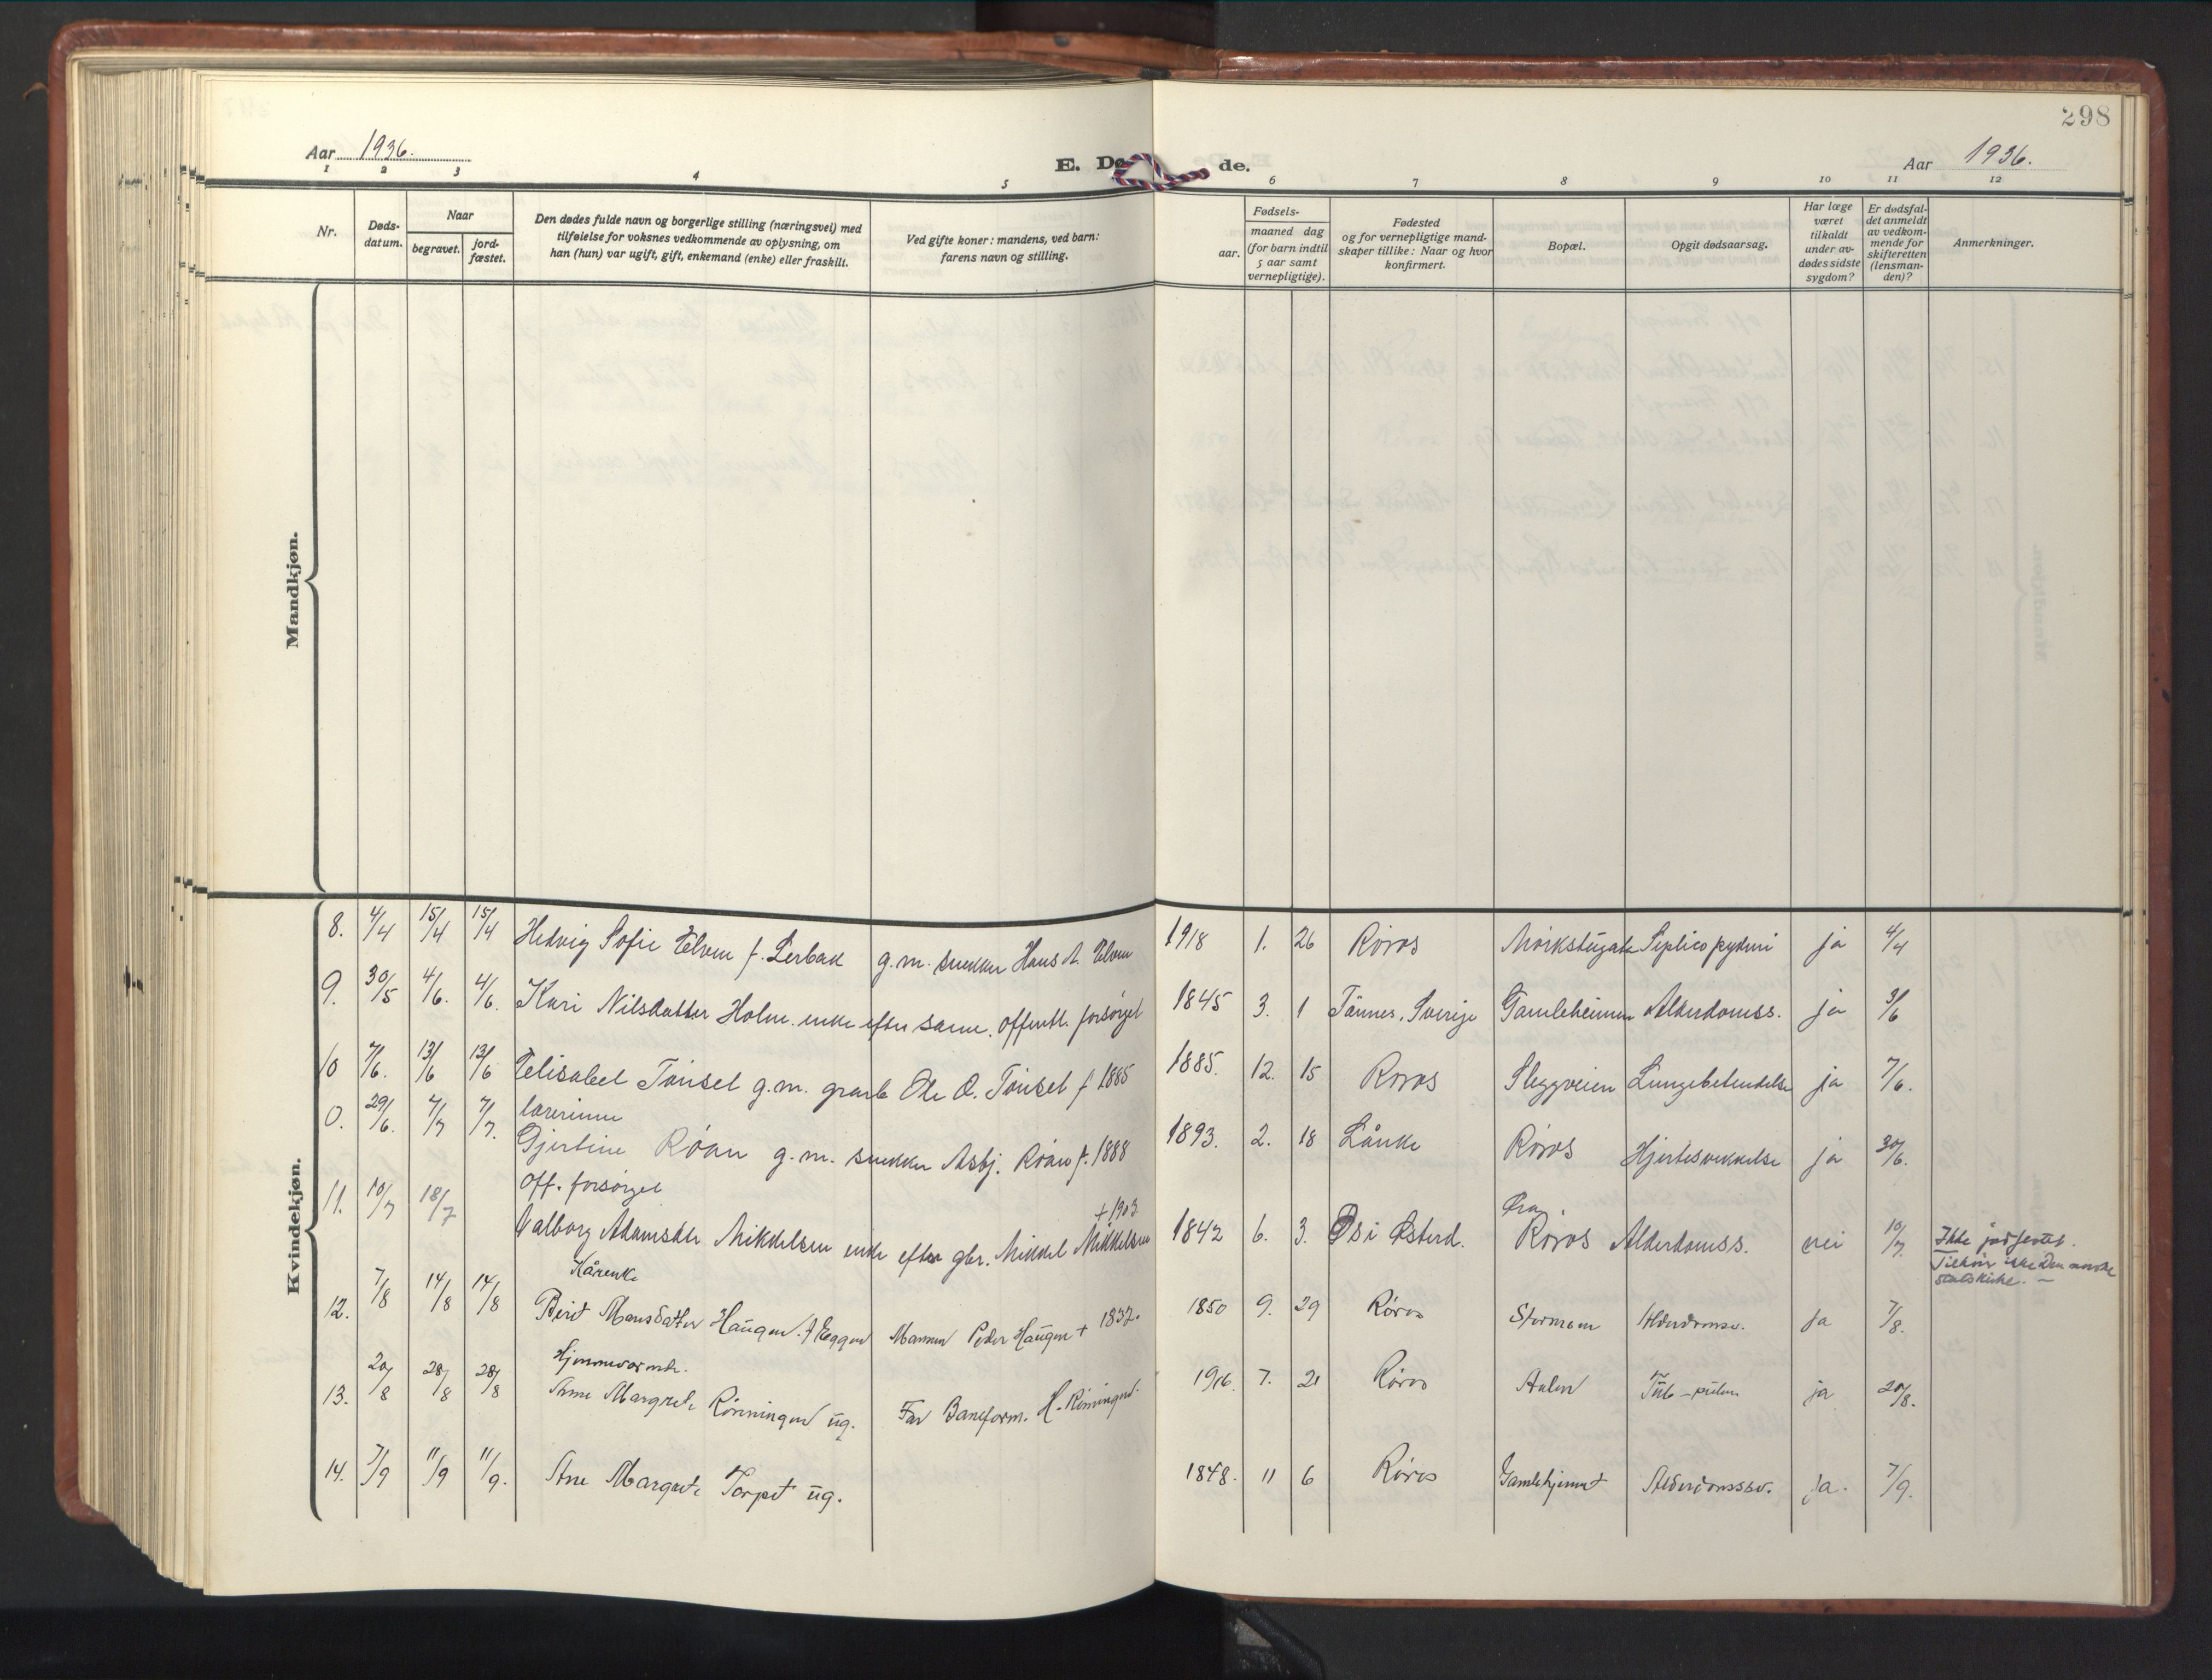 298
Aar 1936.
E. Dø de.
Aar 1936.
1 2 3 4 5 6 7 8 9 10 11 12
Nr.
Døds-
datum.
Naar
begravet.
jord-
fæstet.
Den dødes fulde navn og borgerlige stilling (næringsvei) med
tilføielse for voksnes vedkommende av oplysning, om
han (hun) var ugift, gift, enkemand (enke) eller fraskilt.
Ved gifte koner: mandens, ved barn:
farens navn og stilling.
Fødsels-
aar.
maaned dag
(for barn indtil
5 aar samt
vernepligtige).
Fødested
og for vernepligtige mand-
skaper tillike: Naar og hvor
konfirmert.
Bopæl.
Opgit dødsaarsag.
Har læge
været
tilkaldt
under av-
dødes sidste
sygdom?
Er dødsfal-
det anmeldt
av vedkom-
mende for
skifteretten
(lensman-
den)?
Anmerkninger.
Mandkjøn.
Kvindekjøn.
8. 4/4 15/4 15/4 Hedvig Sofie Elven f. Lerbak g.m. snekker Hans A. Elven 1918 1. 26 Røros Mørkstugata ja 4/4
9. 30/5 4/6. 4/6. Kari Nilsdatter Holm enke efter samme. offentl. forsørget 1845 3. 1 Tännes, Sverige Gamleheimen Alderdomss. ja 3/6
10 7/6. 13/6 13/6 Elisabet Tønset g.m. grarb Ole O. Tønset f 1885 1885. 12. 15 Røros Sleggveien Lungebetendelse ja 7/6.
lærerinne
0. 29/6. 7/7 7/7. Gjertine Røan g.m. snekker Asbj. Røan f. 1888 1893. 2. 18 Lånke Røros Hjertesvekkelse ja 30/6.
off. forsørget
+ 1903
Øra
11. 10/7 18/7 Valborg Adamsdtr Mikkelsen enke efter gbr. Mikkel Mikkelsen 1842 6. 3. Os i Østerd. Røros Alderdomss. nei 10/7. Ikke jordfestet.
Tilhør ikke Den norske
statskirke. –
Kårenke
12. 7/8 14/8 14/8 Berit Monsdatter Haugen f Eggen Mannen Peder Haugen + 1832. 1850 9. 29 Røros Stormoen Alderdomsv. ja 7/8.
Hjemmeværende.
13. 20/8 28/8 28/8 Anne Margrete Rønningen ug. Far Baneform. H. Rønningen. 1916. 7. 21 Røros Aalen Tub – pulm ja 20/8.
14. 7/9 11/9 11/9. Ane Margrete Torpet ug. 1848. 11 6 Røros Gamlehjemmet Alderdomssv. Ja. 7/9.